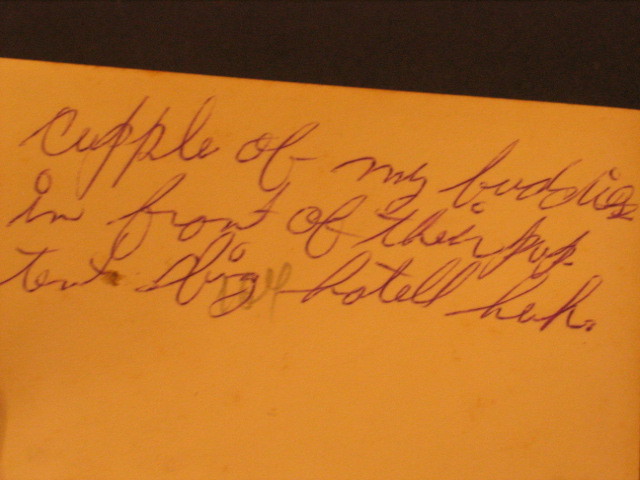 cupple of my buddies
in front of their pup
tent. Big hotell heh.